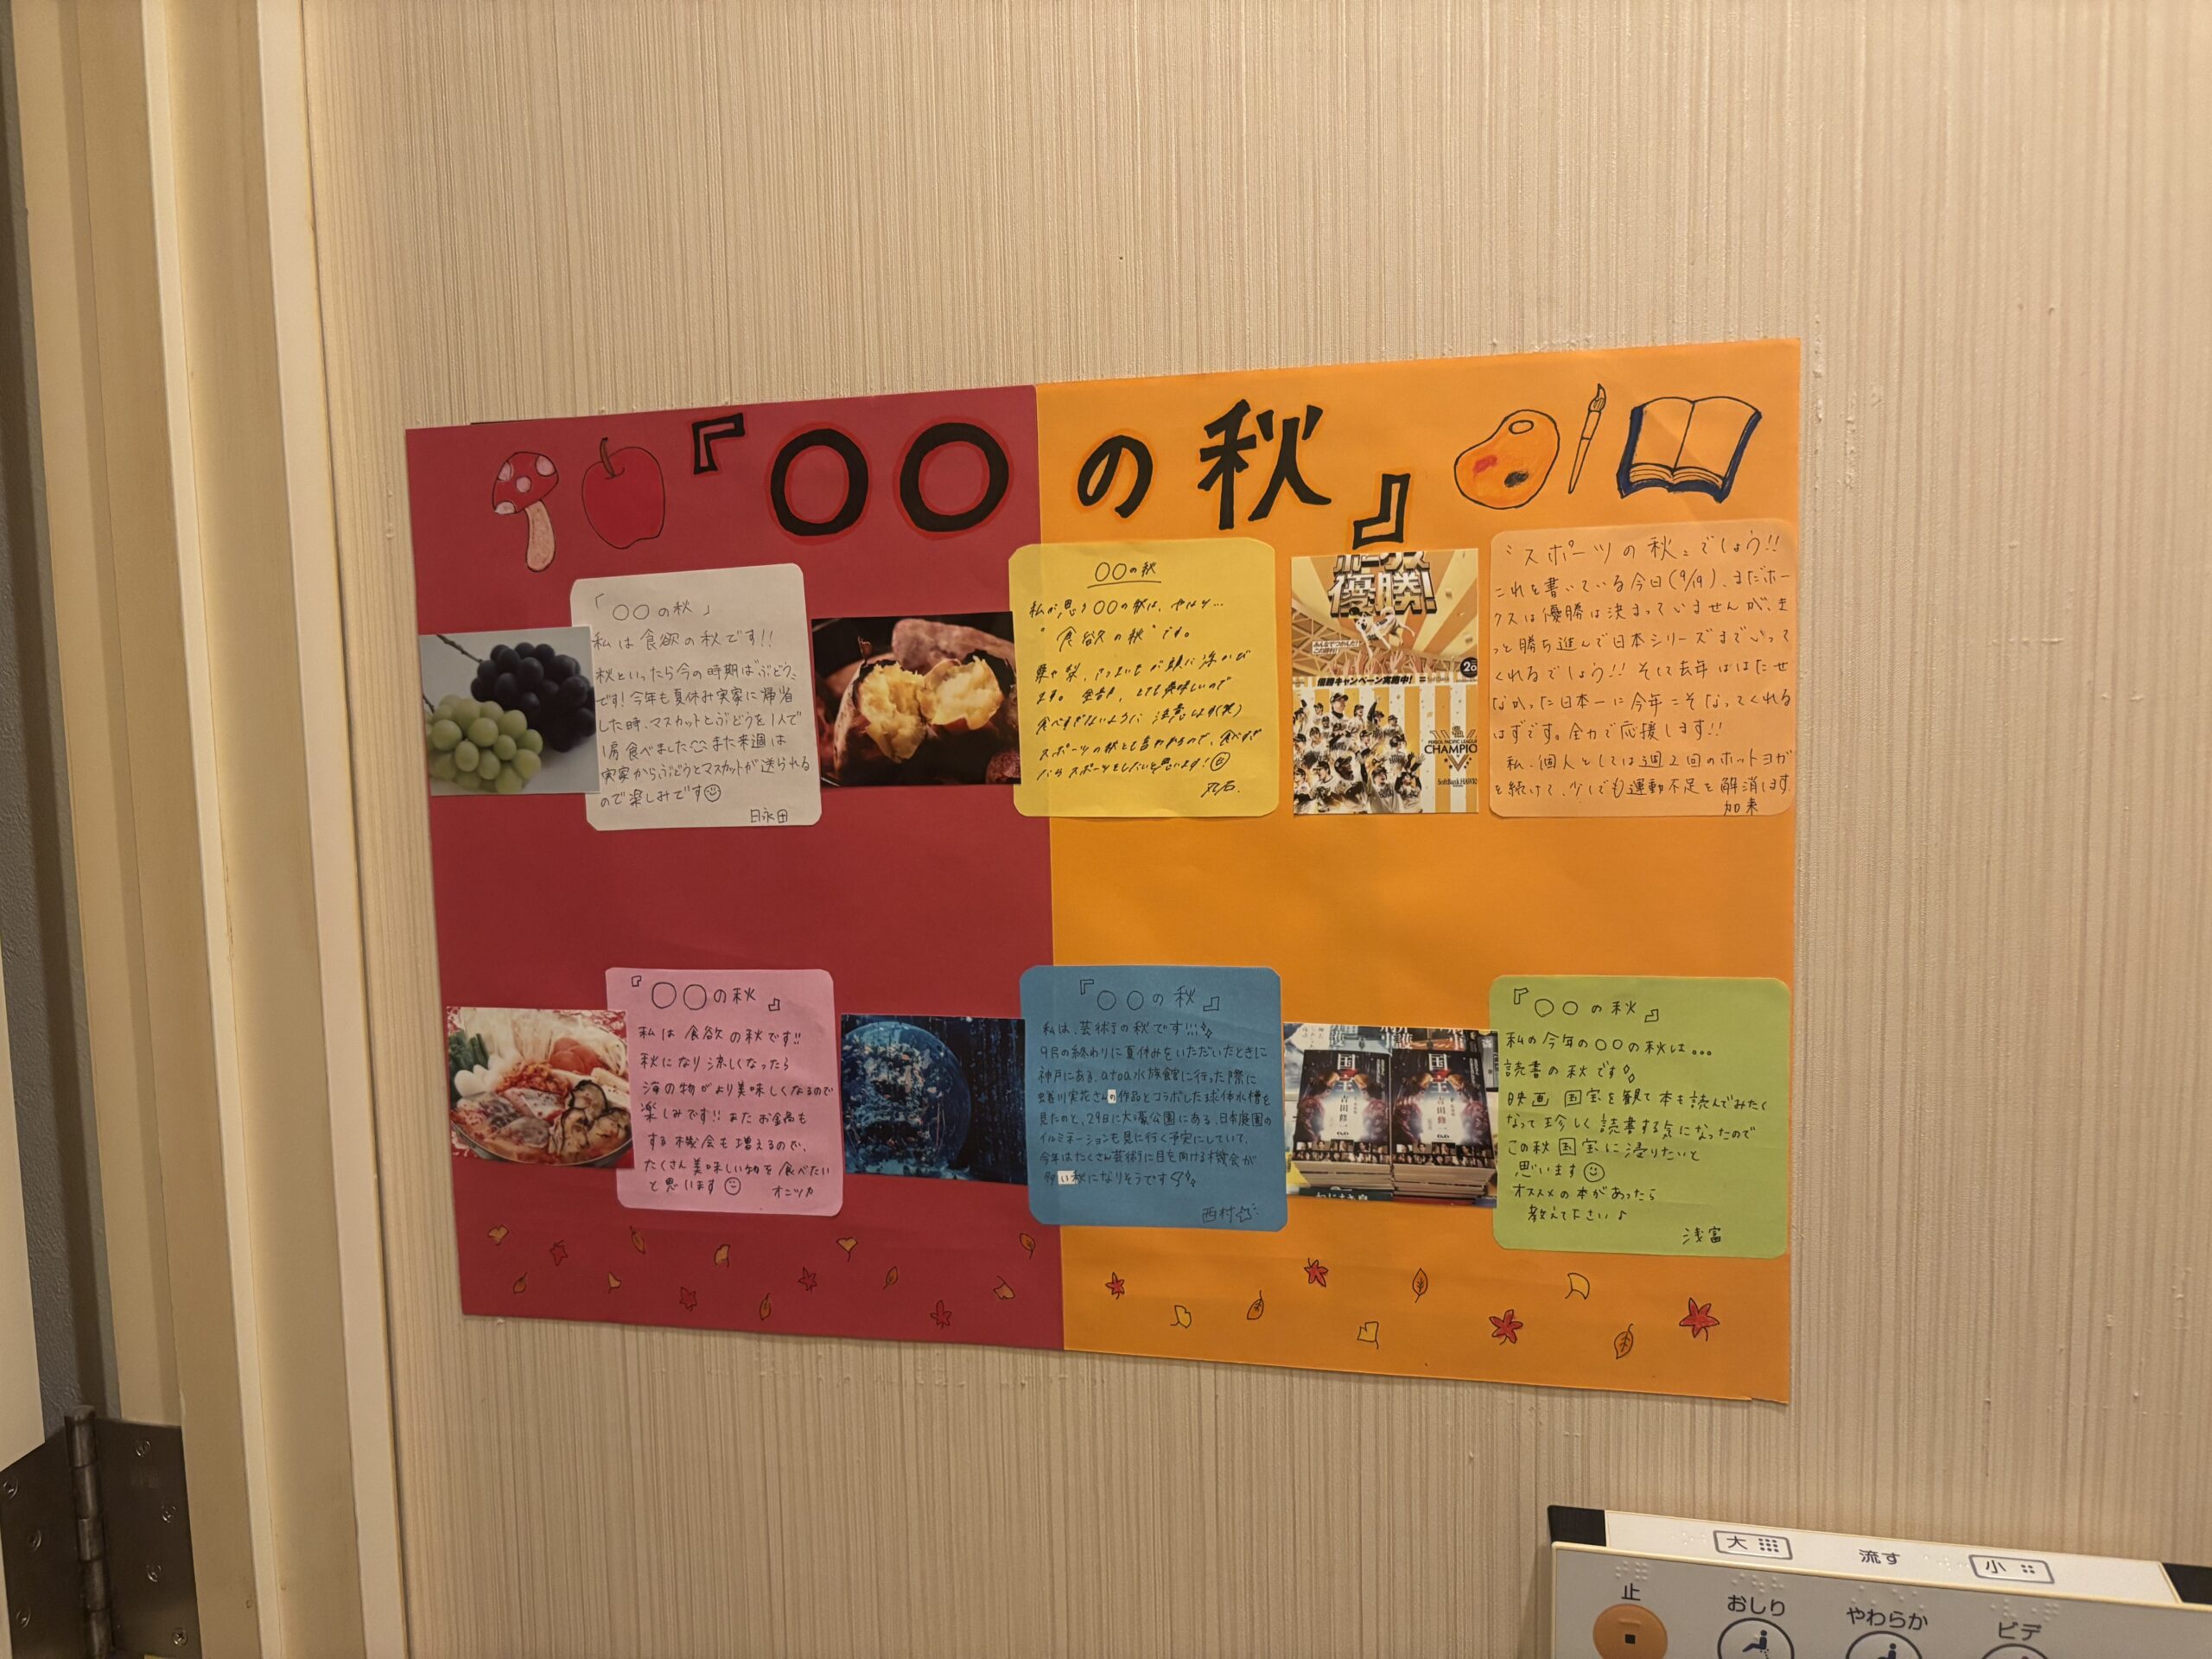 『〇〇の秋』
「〇〇の秋」
私は食欲の秋です!!
秋といったら今の時期はぶどう
です!今年も夏休み実家に帰省
した時、マスカットとぶどうを1人で
1房食べましたまた来週は
実家からぶどうとマスカットが送られる
ので楽しみです
日永田
〇〇の秋
私が思う〇〇の秋は、やはり…
"食欲の秋"です。
栗や梨、さつまいもが頭に浮かび
ます。全部、とても美味しいので
食べすぎないように注意します(笑)
スポーツの秋とも言われるので、食べすぎ
たらスポーツをしたいと思います!
ホークス
優勝!
優勝キャンペーン実施中!
CHAMPIO
SoftBank HAWKS
"スポーツの秋"でしょう!!
これを書いている今日(9/19)、まだホー
クスは優勝は決まっていませんが、き
っと勝ち進んで日本シリーズまでいって
くれるでしょう!!そして去年ははたせ
なかった日本一に今年こそなってくれる
はずです。全力で応援します!!
私、個人としては週2回のホットヨガ
を続けて、少しでも運動不足を解消します。
加来
『〇〇の秋』
私は食欲の秋です!!
秋になり涼しくなったら
海の物がより美味しくなるので
楽しみです!!またお鍋も
する機会も増えるので、
たくさん美味しい物を食べたい
と思います
オニツカ
『〇〇の秋』
私は、芸術の秋です!!!
9月の終わりに夏休みをいただいたときに
神戸にある、atoa水族館に行った際に
蜷川実花さんの作品とコラボした球体水槽を
見たのと、29日に大濠公園にある、日本庭園の
イルミネーションも見に行く予定にしていて、
今年はたくさん芸術に目を向ける機会が
多い秋になりそうです
西村
国宝
吉田修一
国宝
吉田修一
『〇〇の秋』
私の今年の〇〇の秋は...
読書の秋です
映画 国宝を観て本も読んでみたく
なって珍しく読書する気になったので
この秋国宝に浸りたいと
思います
オススメの本があったら
教えて下さい♪
浅富
大
流す
小
止
おしり
やわらか
ビデ